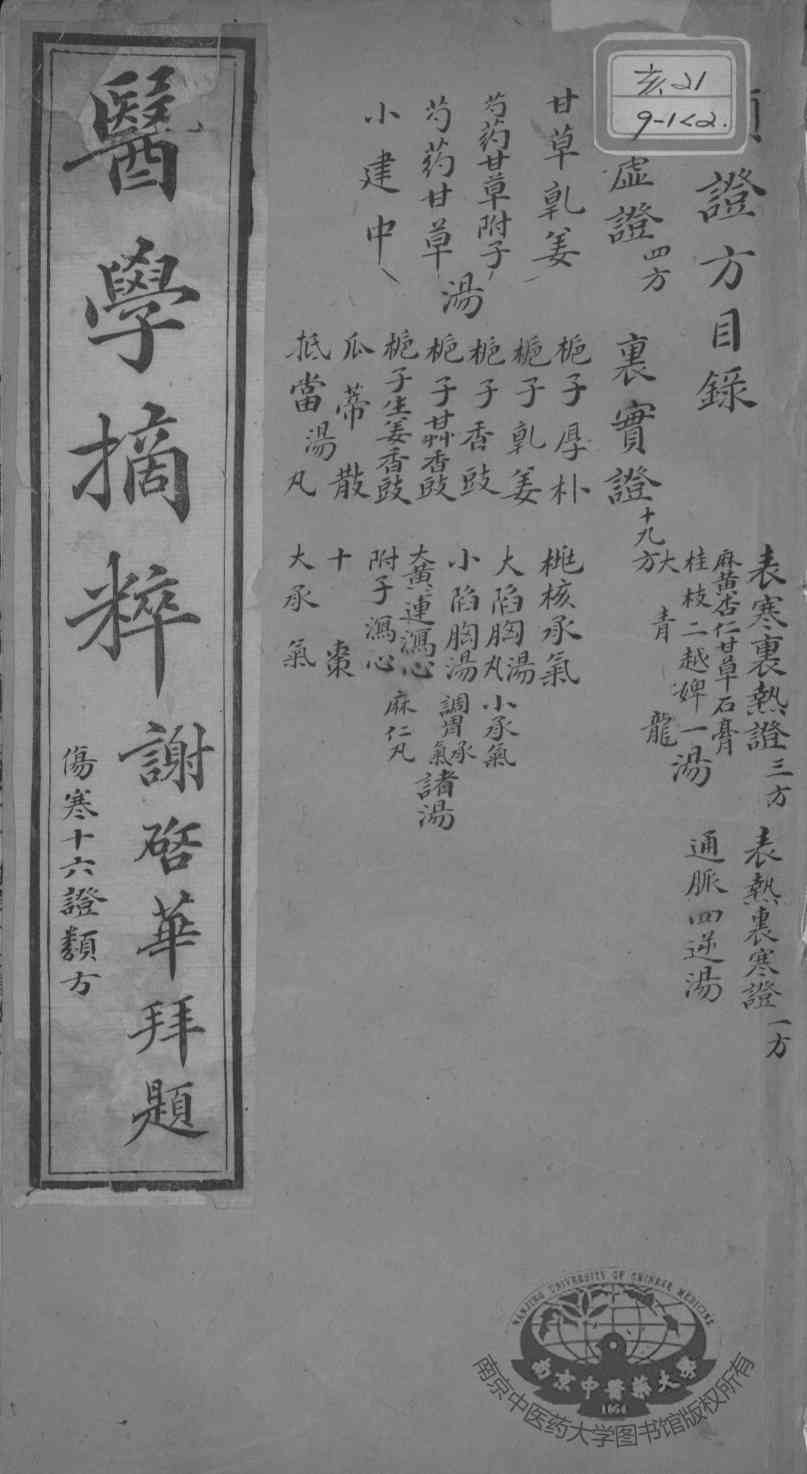 亥.21
9-1<2.
類證方目錄
虛證四方
甘草乹姜
芍药甘草附子
芍药甘草
小建中
湯
裏實證十九方
梔子厚朴
梔子乹姜
梔子香豉
梔子甘艸香豉
梔子生姜香豉
瓜蒂散
抵當湯丸
桃核承氣
大陷胸丸湯
小陷胸湯
大黄黄連瀉心
附子瀉心
十棗
大承氣
小承氣
調胃承氣
麻仁丸
諸湯
表寒裏熱證三方
麻黄杏仁甘草石膏
桂枝二越婢一
大青龍
湯
表熱裏寒證一方
通脈四逆湯
醫學摘粹
謝啓華拜題
傷寒十六證類方
NANJING UNIVERSITY OF CHINESE MEDICINE
南京中醫藥大學
1954
南京中医药大学图书馆版权所有